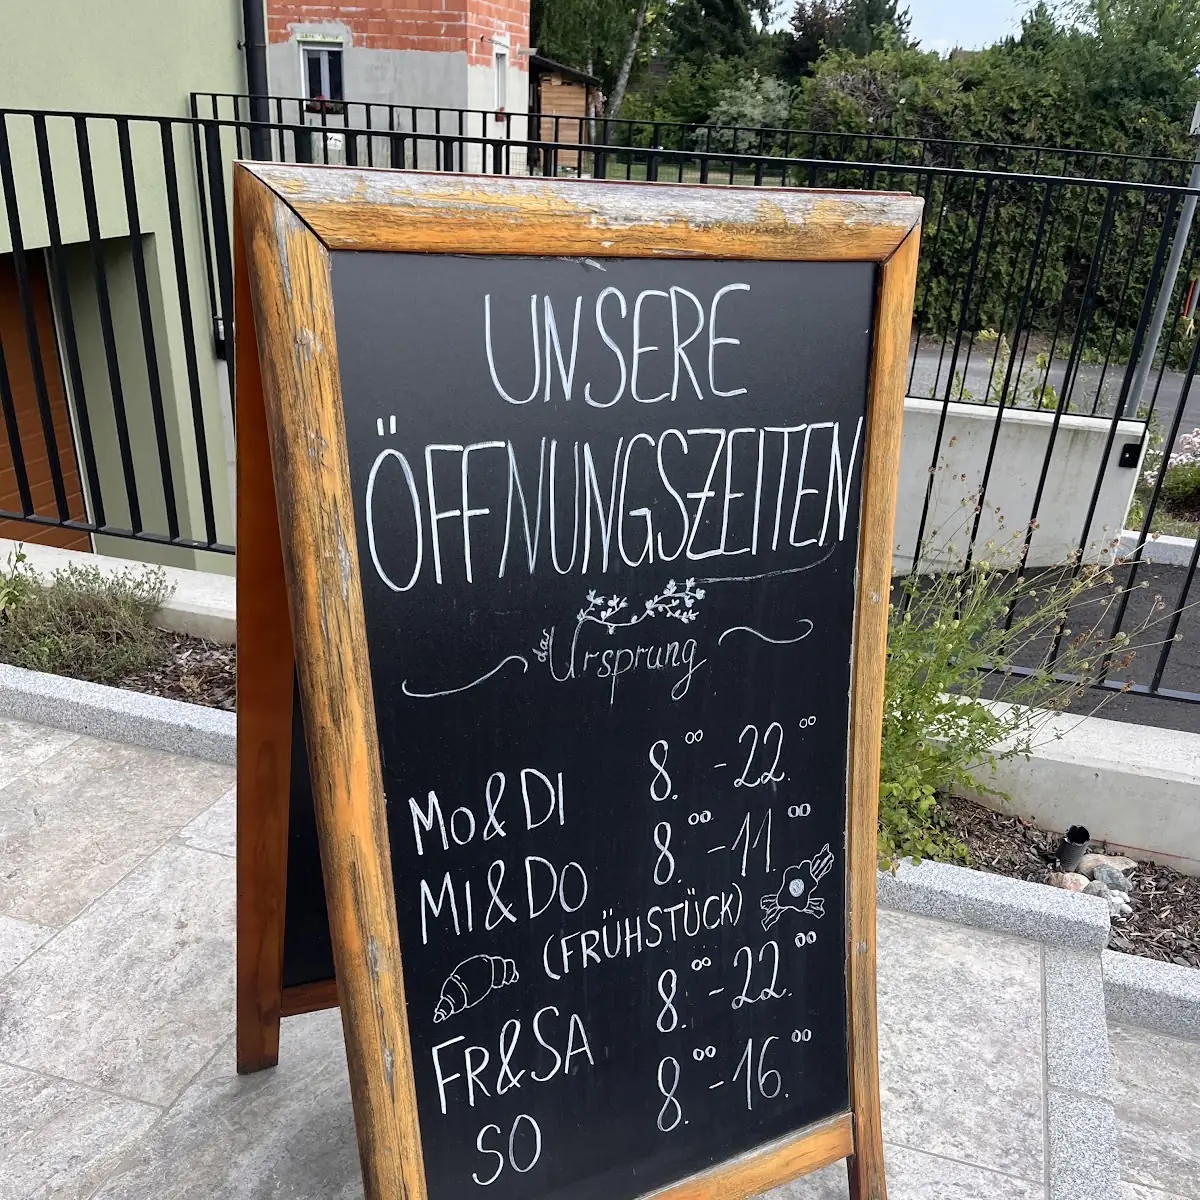 UNSERE
ÖFFNUNGSZEITEN
das Ursprung
MO & DI 8.⁰⁰ - 22.⁰⁰
MI & DO 8.⁰⁰ - 11.⁰⁰
(FRÜHSTÜCK)
FR & SA 8.⁰⁰ - 22.⁰⁰
SO 8.⁰⁰ - 16.⁰⁰